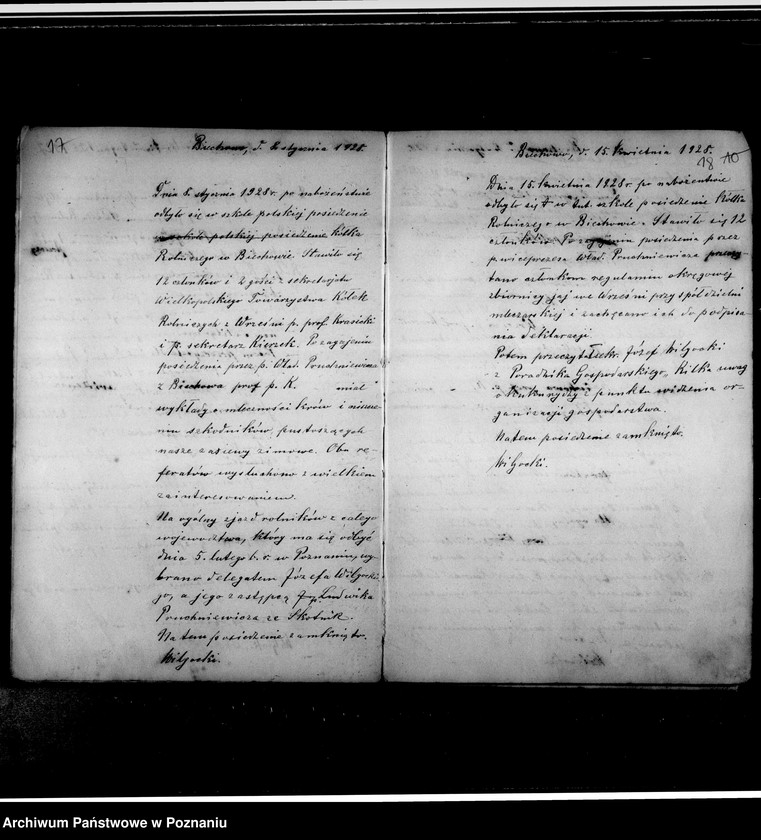 17
Biechowo, d. 8 stycznia 1928.
Dnia 8. stycznia 1928 r. po nabożeństwie
odbyło się w szkole polskiej posiedzenie
w szkole polskiej posiedzenie Kółka
Rolniczego w Biechowie. Stawiło się
12 członków i 2 gości z sekretarjatu
Wielkopolskiego Towarzystwa Kółek
Rolniczych z Wrześni p. prof. Krasicki
i p. sekretarz Kierzek. Po zagajeniu
posiedzenia przez p. Wład. Ponchniewicza
z Biechowa prof p. K. miał
wykłady o mleczności krów i niszcze-
niu szkodników, pustoszących
nasze zasiewy zimowe. Obu re-
feratów wysłuchono z wielkiem
zainteresowaniem.
Na ogólny zjazd rolników z całego
województwa, który ma się odbyć
dnia 5. lutego b. r. w Poznaniu, wy-
brano delegatem Józefa Wilgockie-
go, a jego zastępcą p. Ludwika
Ponchniewicza ze Skotnik.
Na tem posiedzenie zamknięto.
Wilgocki.
18 10
Biechowo, d. 15. kwietnia 1928.
Dnia 15. kwietnia 1928 r. po nabożeństwie
odbyło się w szkole posiedzenie Kółka
Rolniczego w Biechowie. Stawiło się 12
członków. Po zagajeniu posiedzenia przez
p. wiceprezesa Wład. Ponchniewicza przeczy-
tano członkom regulamin okręgowej
zbiornicy jaj we Wrześni przy spółdzielni
mleczarskiej i zachęcano ich do podpisa-
nia deklaracji.
Potem przeczytał sekr. Józef Wilgocki
z Poradnika Gospodarskiego, Kilka uwag
o kukurydzy z punktu widzenia or-
ganizacji gospodarstwa.
Na tem posiedzenie zamknięto.
Wilgocki.
Archiwum Państwowe w Poznaniu